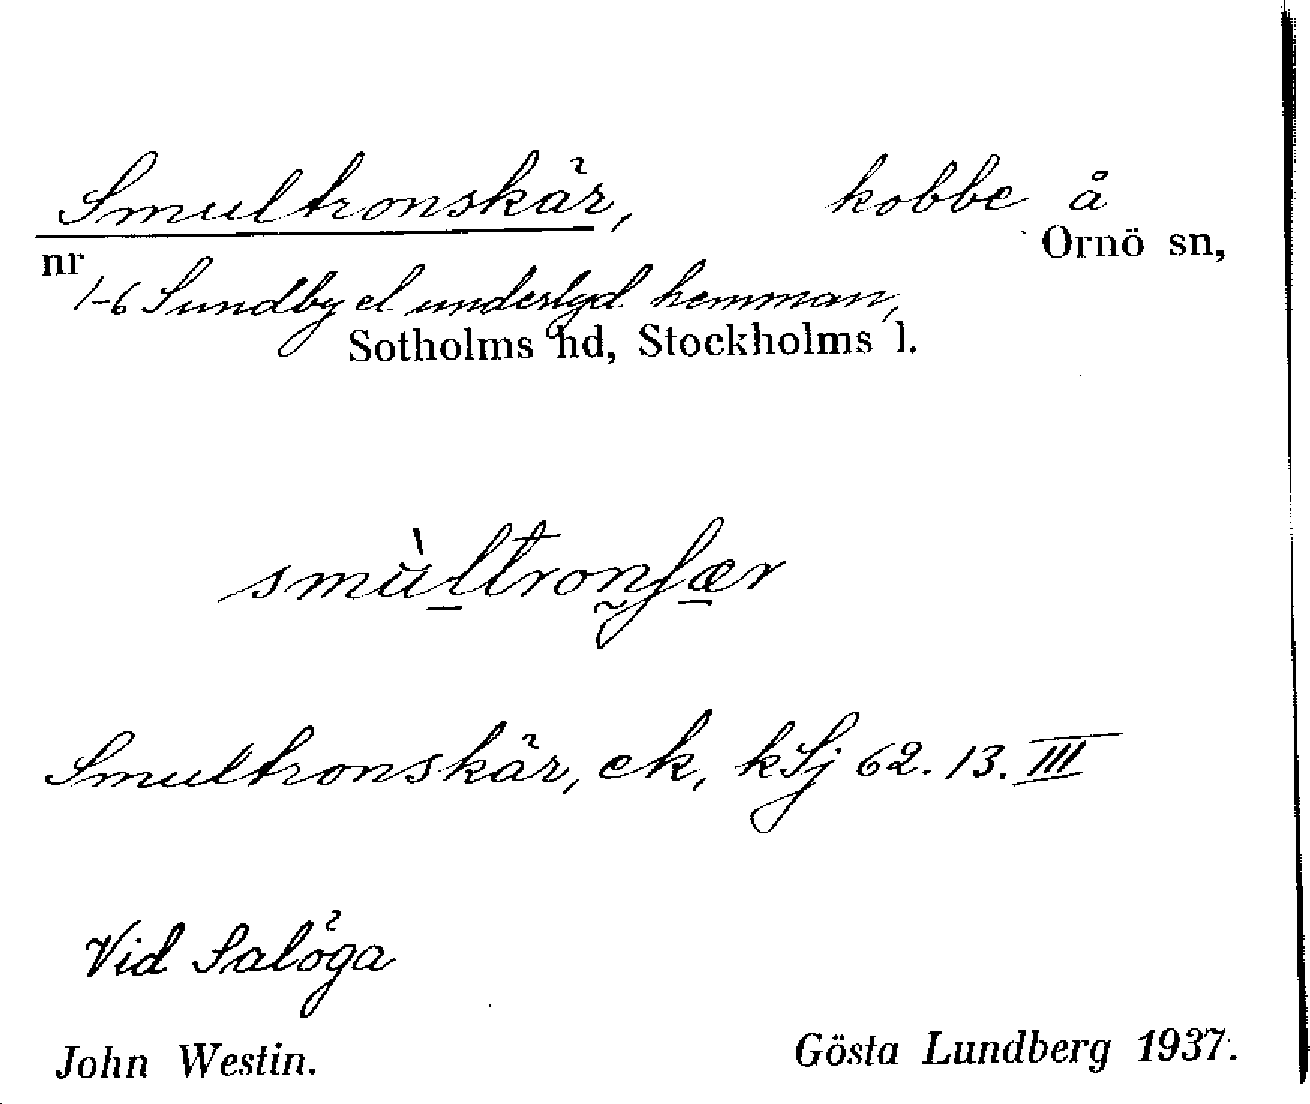 Smultronskär, kobbe å
Ornö sn,
nr 1-6 Sundby el underlyd. hemman,
Sotholms hd, Stockholms l.
smùltronʃær
Smultronskär, ek, kSj 62. 13. III
Vid Salöga
John Westin. Gösta Lundberg 1937.